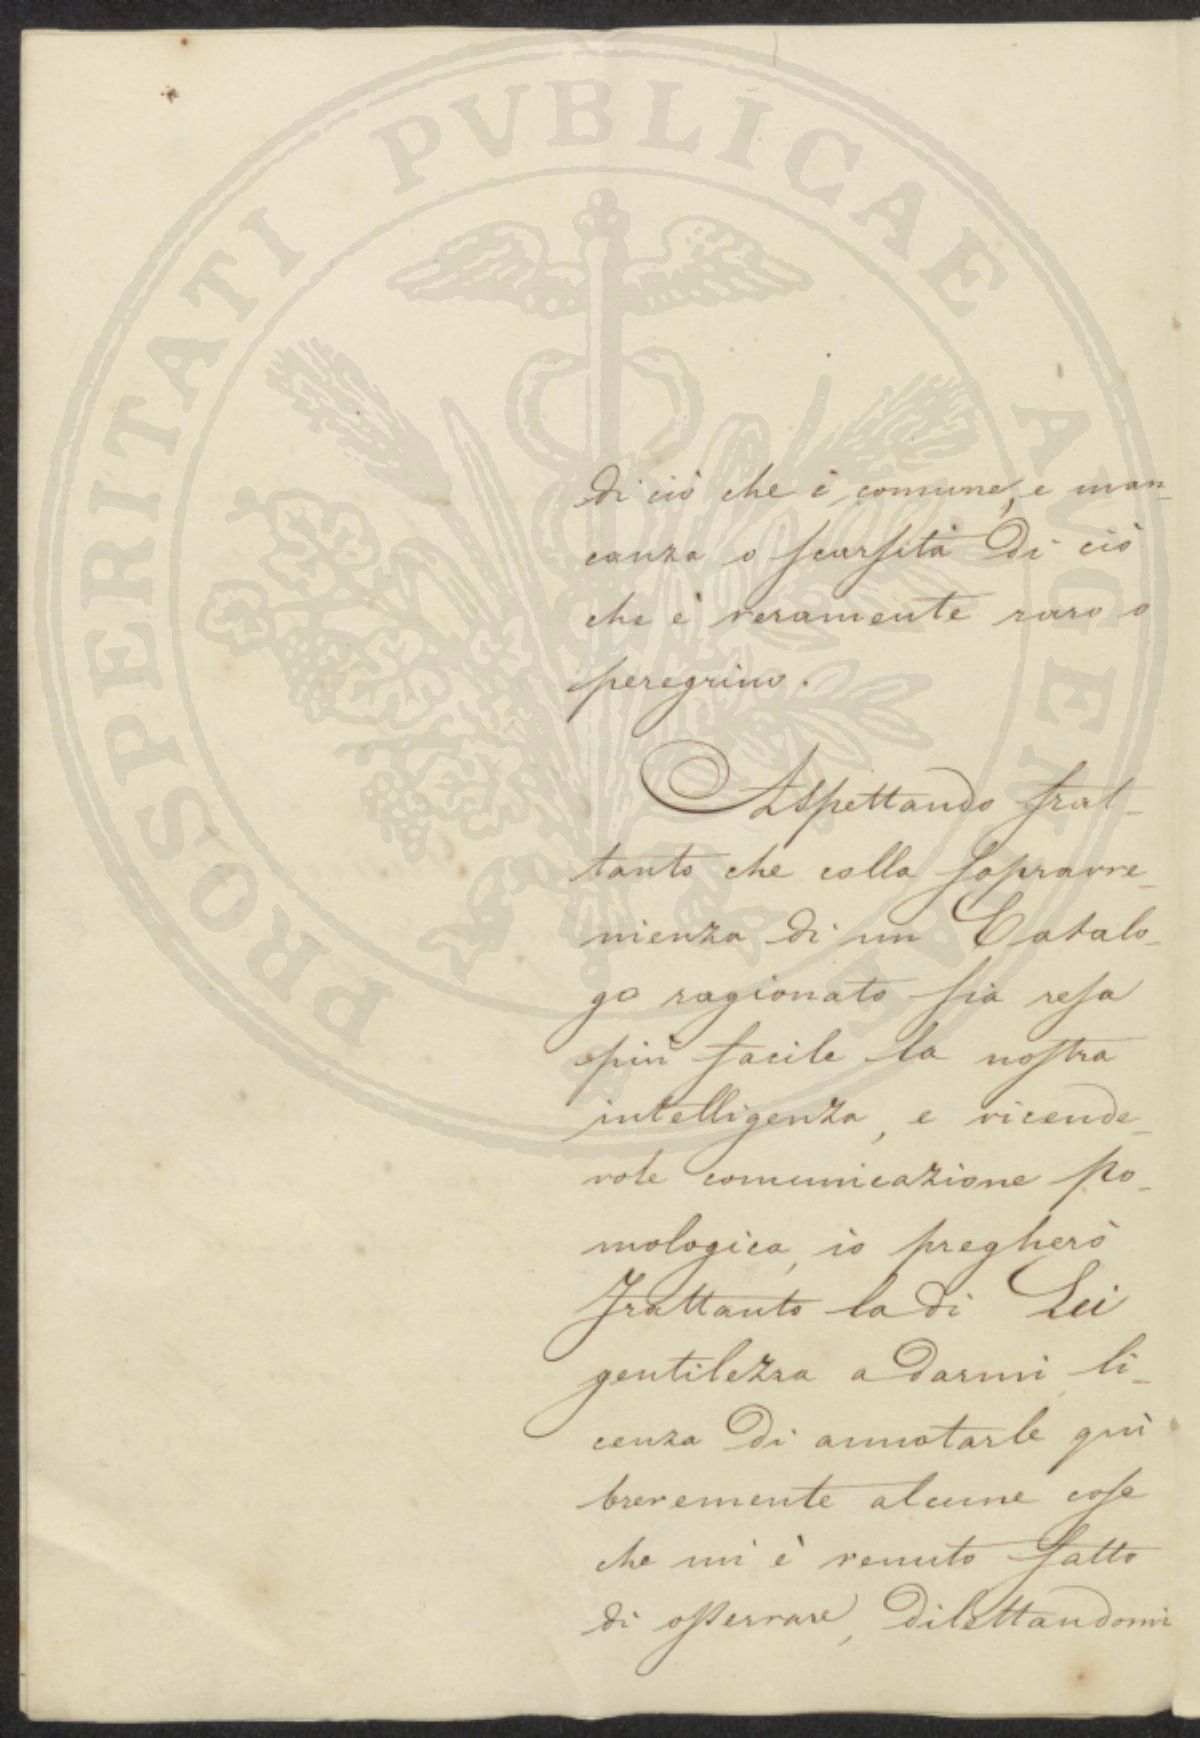 PROSPERITATI PUBLICAE AUGENDAE
di ciò che è comune, e man-
canza o scarsità di ciò
che è veramente raro o
peregrino.
Aspettando frat-
tanto che colla sopravve-
nienza di un Catalo-
go ragionato sia resa
più facile la nostra
intelligenza, e vicende-
vole comunicazione po-
mologica, io pregherò
frattanto la di Lei
gentilezza a darmi li-
cenza di annotarle quì
brevemente alcune cose
che mi è venuto fatto
di osservare, dilettandomi